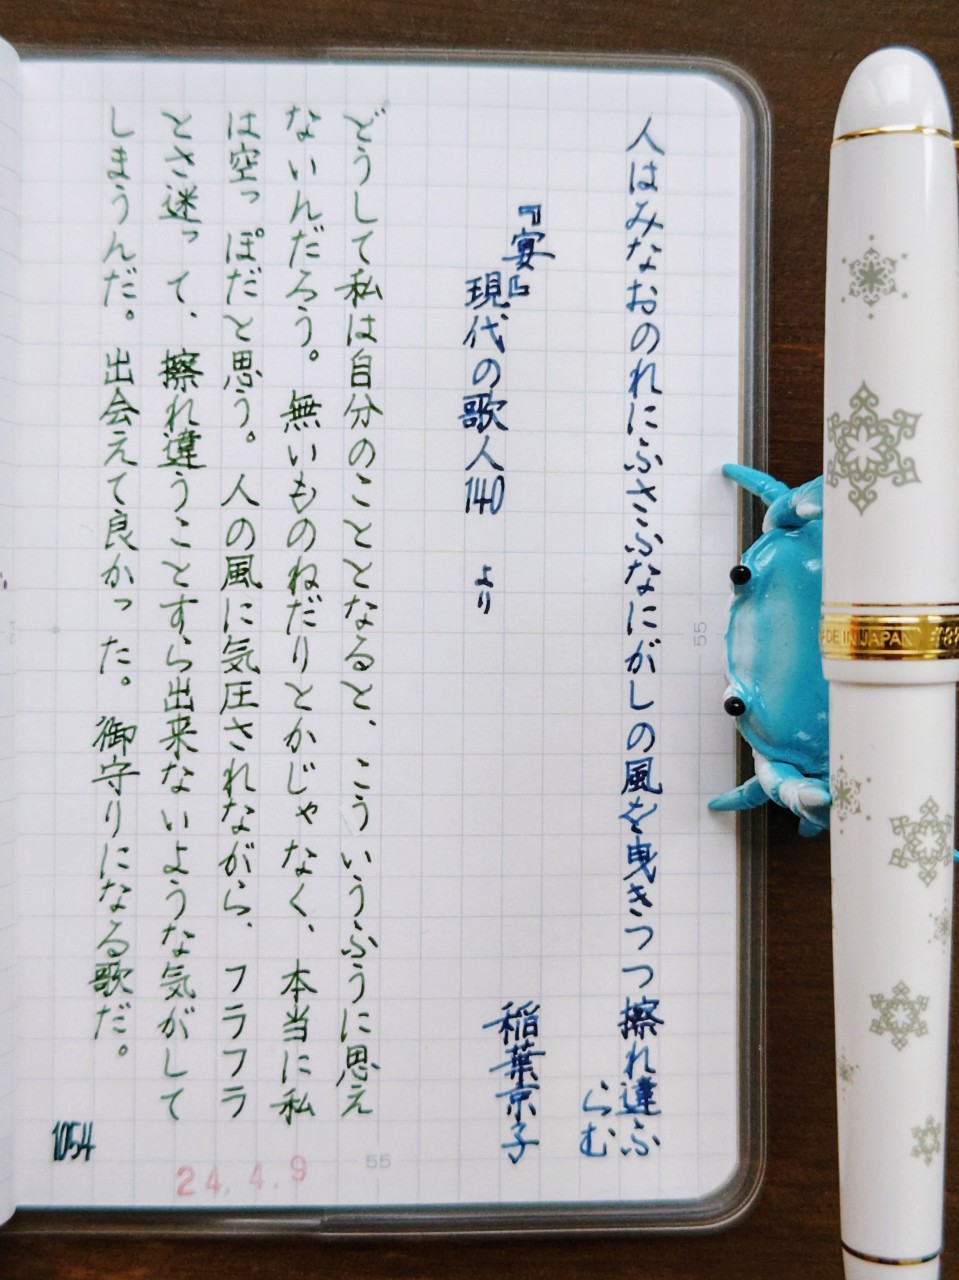 人はみなおのれにふさふなにがしの風を曳きつつ擦れ違ふ
らむ
稲葉京子
『宴』
現代の歌人140 より
どうして私は自分のこととなると、こういうふうに思え
ないんだろう。無いものねだりとかじゃなく、本当に私
は空っぽだと思う。人の風に気圧されながら、フラフラ
とさ迷って、擦れ違うことすら出来ないような気がして
しまうんだ。出会えて良かった。御守りになる歌だ。
1054
24.4.9
55
55
MADE IN JAPAN